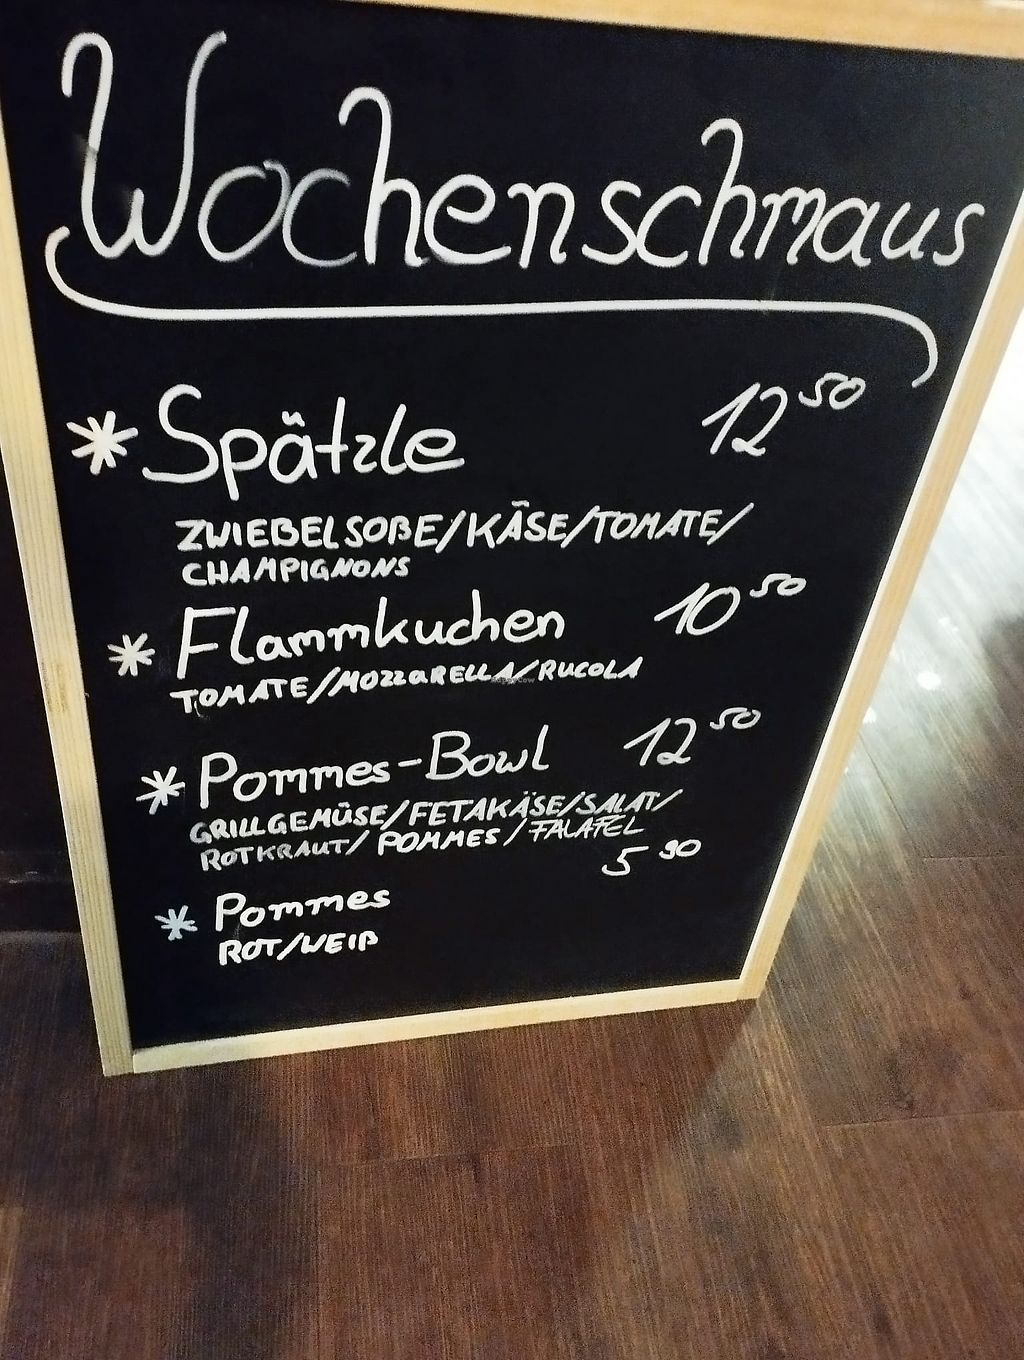 Wochenschmaus
* Spätzle 12 50
ZWIEBELSOßE/KÄSE/TOMATE/
CHAMPIGNONS
* Flammkuchen 10 50
TOMATE/MOZZARELLA/RUCOLA
* Pommes-Bowl 12 50
GRILLGEMÜSE/FETAKÄSE/SALAT/
ROTKRAUT/POMMES/FALAFEL
* Pommes 5 90
ROT/WEIß